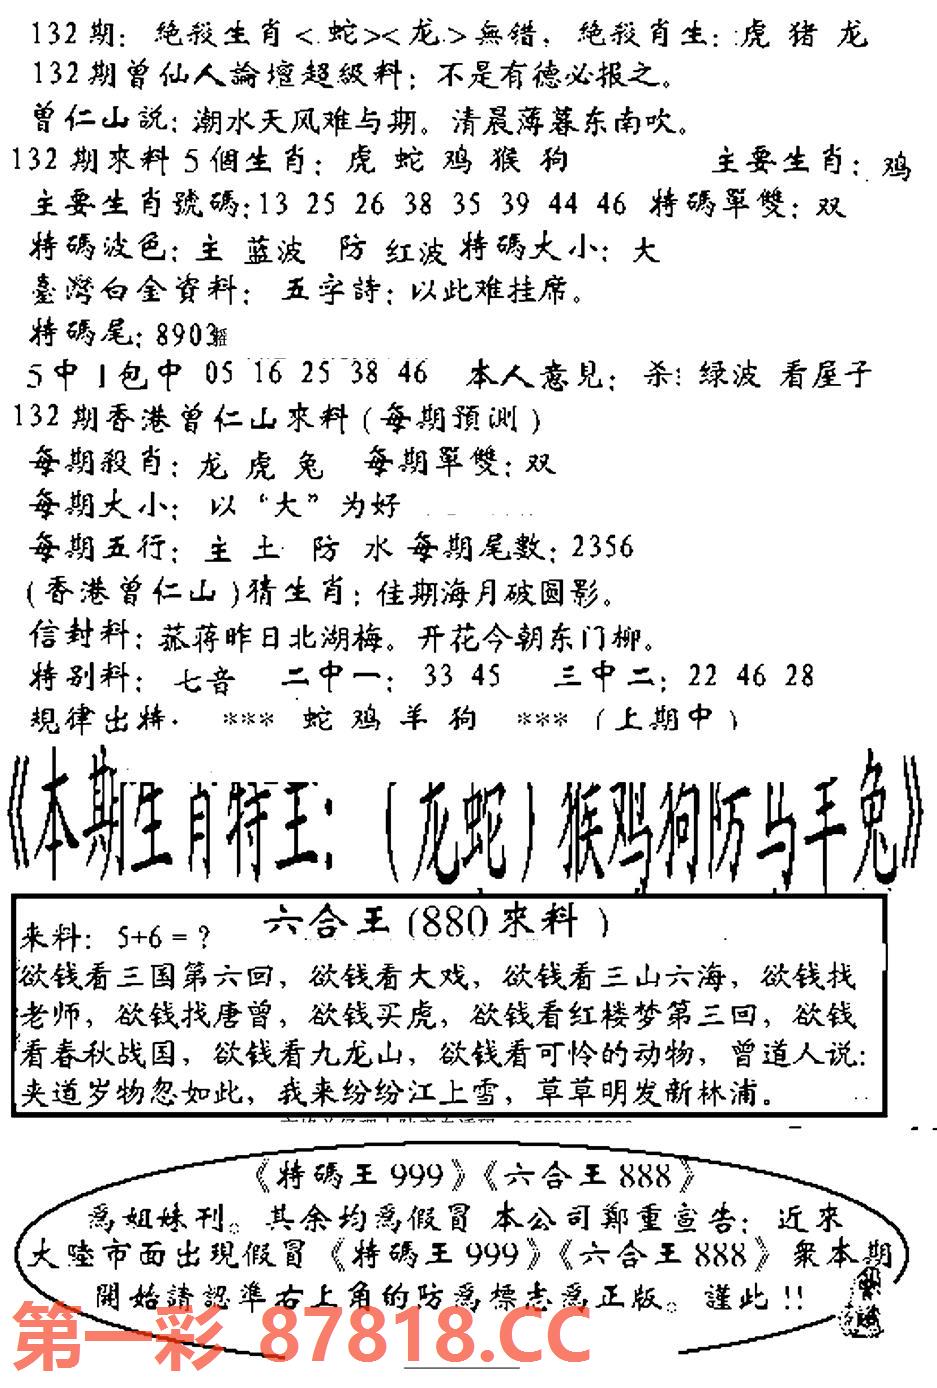 132期：絶殺生肖<蛇><龙>無错，絶殺肖生：虎 猪 龙
132期曾仙人論壇超級料；不是有德必报之。
曾仁山説：潮水天风难与期。清晨薄暮东南吹。
132期來料5個生肖：虎 蛇 鸡 猴 狗 主要生肖：鸡
主要生肖號碼：13 25 26 38 35 39 44 46 特碼單雙：双
特碼波色：主 蓝波 防 红波 特碼大小：大
臺灣白金資料： 五字詩：以此难挂席。
特碼尾：8903
5中1包中 05 16 25 38 46 本人意見：杀：绿波 看屋子
132期香港曾仁山來料(每期預測)
每期殺肖：龙 虎 兔 每期單雙：双
每期大小：以“大”为好
每期五行：主 土 防 水 每期尾數：2356
(香港曾仁山)猜生肖：佳期海月破圆影。
信封料：菰蒋昨日北湖梅。开花今朝东门柳。
特别料：七音 二中一：33 45 三中二：22 46 28
規律出特. *** 蛇 鸡 羊 狗 *** (上期中)
《本期生肖特王：（龙蛇）猴鸡狗防马羊兔》
六合王(880來料)
来料：5+6=？
欲钱看三国第六回，欲钱看大戏，欲钱看三山六海，欲钱找
老师，欲钱找唐曾，欲钱买虎，欲钱看红楼梦第三回，欲钱
看春秋战国，欲钱看九龙山，欲钱看可怜的动物，曾道人说：
夹道岁物忽如此，我来纷纷江上雪，草草明发新林浦。
《特碼王999》《六合王888》
爲姐妹刊。其余均爲假冒 本公司鄭重宣告；近來
大陸市面出現假冒《特碼王999》《六合王888》衆本期
開始請認準右上角的防爲標志爲正版。謹此!!
第一彩 87818.CC